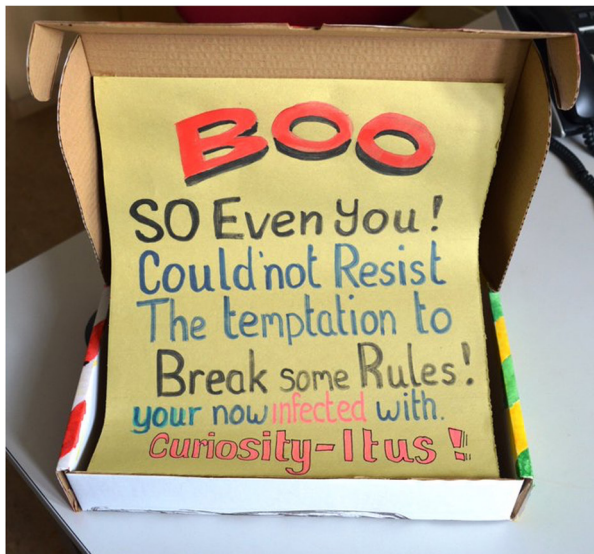 BOO
SO Even you!
Could'not Resist
The temptation to
Break some Rules!
your now infected with.
Curiosity-Itus!